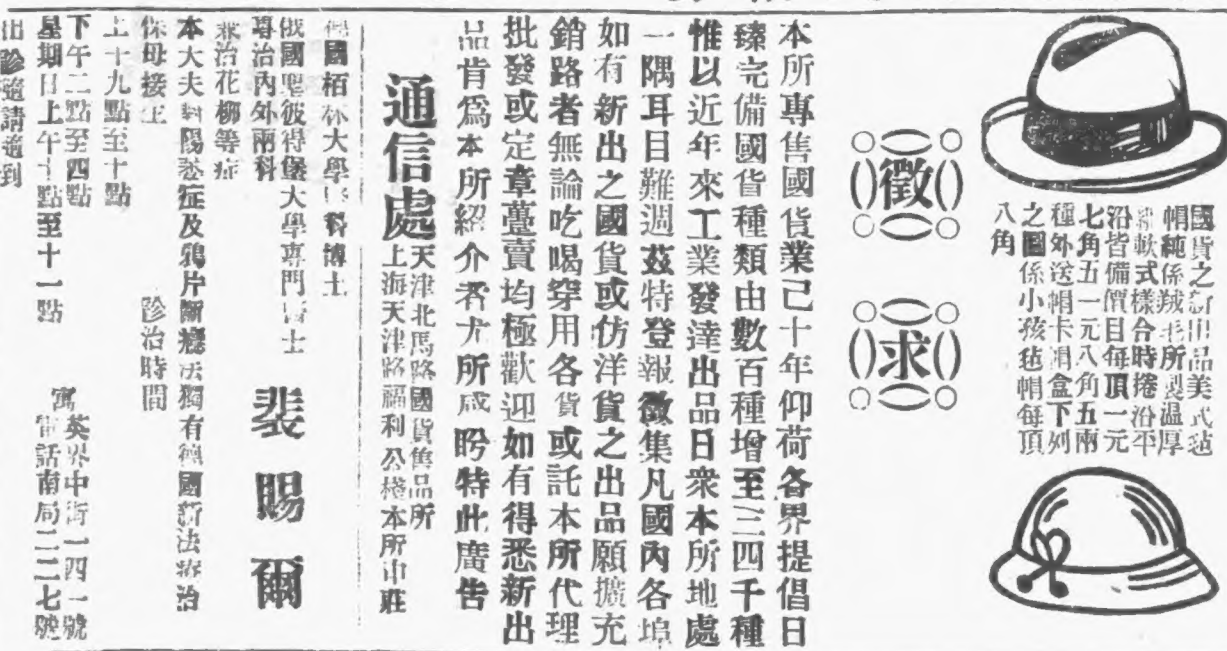 國貨之新出品美式毡
帽純係羢毛所製温厚
軟式樣合時捲沿平
沿皆備價目每頂一元
七角五一元八角五兩
種外送帽卡帽盒下列
之圖係小孩毡帽每頂
八角
徵求
本所專售國貨業已十年仰荷各界提倡日
臻完備國貨種類由數百種增至三四千種
惟以近年來工業發達出品日衆本所地處
一隅耳目難週茲特登報徵集凡國內各埠
如有新出之國貨或仿洋貨之出品願擴充
銷路者無論吃喝穿用各貨或託本所代理
批發或定章躉賣均極歡迎如有得悉新出
品肯爲本所紹介者尤所感盼特此廣告
通信處
天津北馬路國貨售品所
上海天津路福利公棧本所申莊
德國栢林大學醫科博士
俄國聖彼得堡大學專門醫士
裴賜爾
專治內外兩科
兼治花柳等症
本大夫對陽萎症及鴉片斷癮法獨有德國新法療治
保母接生
診治時間
上午九點至十點
下午二點至四點
星期日上午十點至十一點
出診隨請隨到
寓英界中街一四一號
電話南局二二二七號